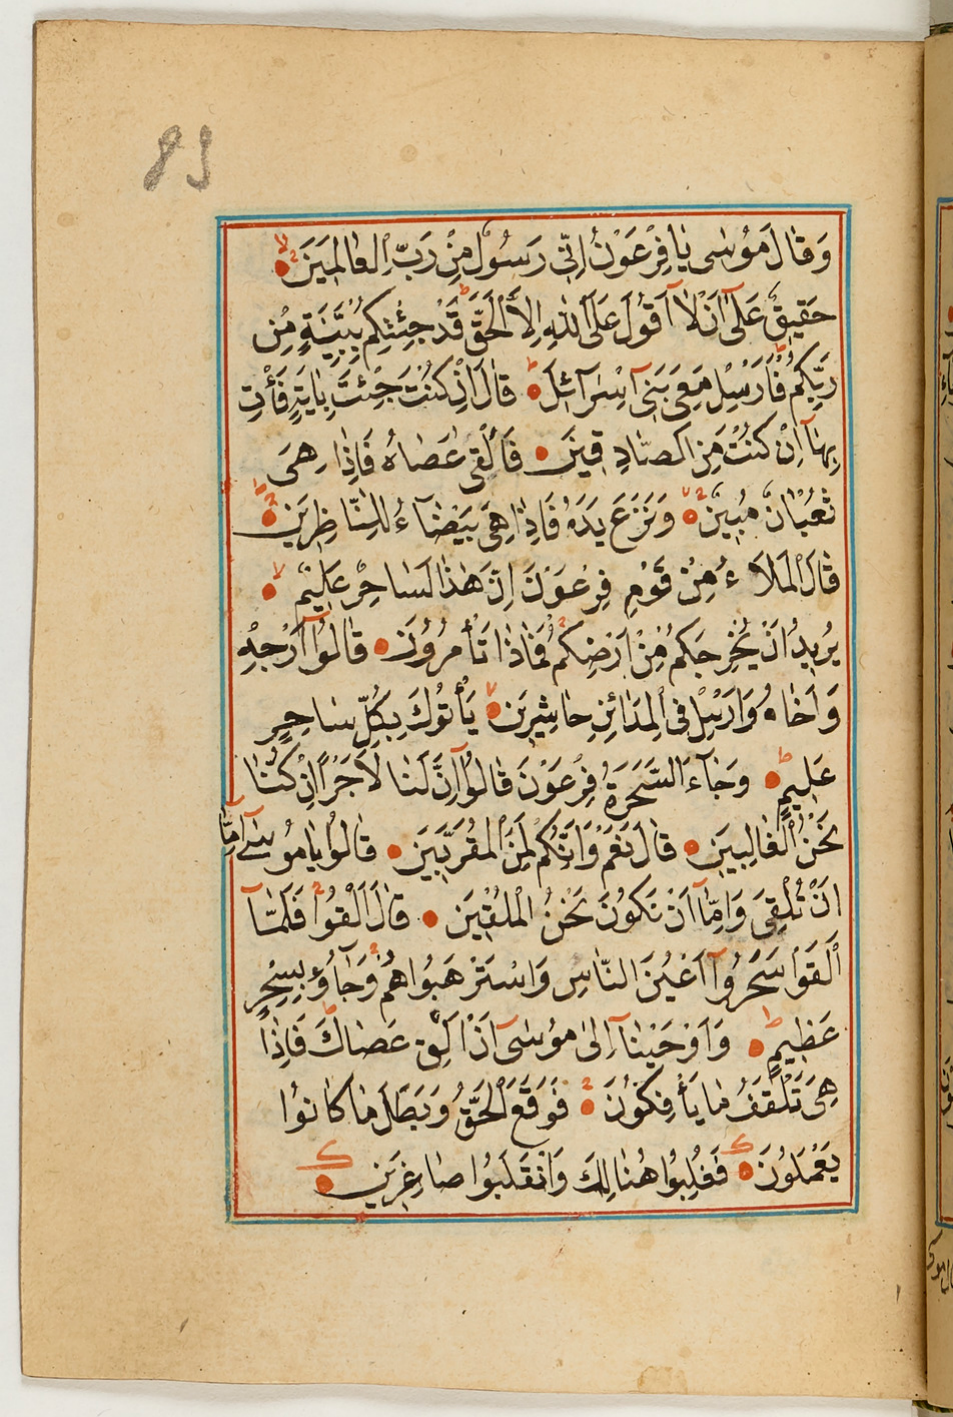 83
وَقَالَ مُوسٰى يَا فِرْعَوْنُ اِنِّى رَسُولٌ مِنْ رَبِّ الْعَالَمِينَ
حَقِيقٌ عَلٰٓى اَنْ لَٓا اَقُولَ عَلَى اللّٰهِ اِلَّا الْحَقَّ قَدْ جِئْتُكُمْ بِبَيِّنَةٍ مِنْ
رَبِّكُمْ فَاَرْسِلْ مَعِىَ بَنِٓى اِسْرَٓائِلَ قَالَ اِنْ كُنْتَ جِئْتَ بِاٰيَةٍ فَأْتِ
بِهَٓا اِنْ كُنْتَ مِنَ الصَّادِقِينَ فَاَلْقٰى عَصَاهُ فَاِذَا هِىَ
ثُعْبَانٌ مُبِينٌ وَنَزَعَ يَدَهُ فَاِذَا هِىَ بَيْضَٓاءُ لِلنَّاظِرِينَ
قَالَ الْمَلَاءُ مِنْ قَوْمِ فِرْعَوْنَ اِنَّ هٰذَا لَسَاحِرٌ عَلِيمٌ
يُرِيدُ اَنْ يُخْرِجَكُمْ مِنْ اَرْضِكُمْ فَمَاذَا تَأْمُرُونَ قَالُٓوا اَرْجِهْ
وَاَخَاهُ وَاَرْسِلْ فِى الْمَدَائِنِ حَاشِرِينَ يَأْتُوكَ بِكُلِّ سَاحِرٍ
عَلِيمٍ وَجَٓاءَ السَّحَرَةُ فِرْعَوْنَ قَالُٓوا اِنَّ لَنَا لَاَجْرًا اِنْ كُنَّا
نَحْنُ الْغَالِبِينَ قَالَ نَعَمْ وَاِنَّكُمْ لَمِنَ الْمُقَرَّبِينَ قَالُوا يَا مُوسٰٓى اِمَّٓا
اَنْ تُلْقِىَ وَاِمَّٓا اَنْ نَكُونَ نَحْنُ الْمُلْقِينَ قَالَ اَلْقُوا فَلَمَّٓا
اَلْقَوْا سَحَرُٓوا اَعْيُنَ النَّاسِ وَاسْتَرْهَبُوهُمْ وَجَٓاؤُ بِسِحْرٍ
عَظِيمٍ وَاَوْحَيْنَٓا اِلٰى مُوسٰٓى اَنْ اَلْقِ عَصَاكَ فَاِذَا
هِىَ تَلْقَفُ مَا يَأْفِكُونَ فَوَقَعَ الْحَقُّ وَبَطَلَ مَا كَانُوا
يَعْمَلُونَ فَغُلِبُوا هُنَالِكَ وَانْقَلَبُوا صَاغِرِينَ